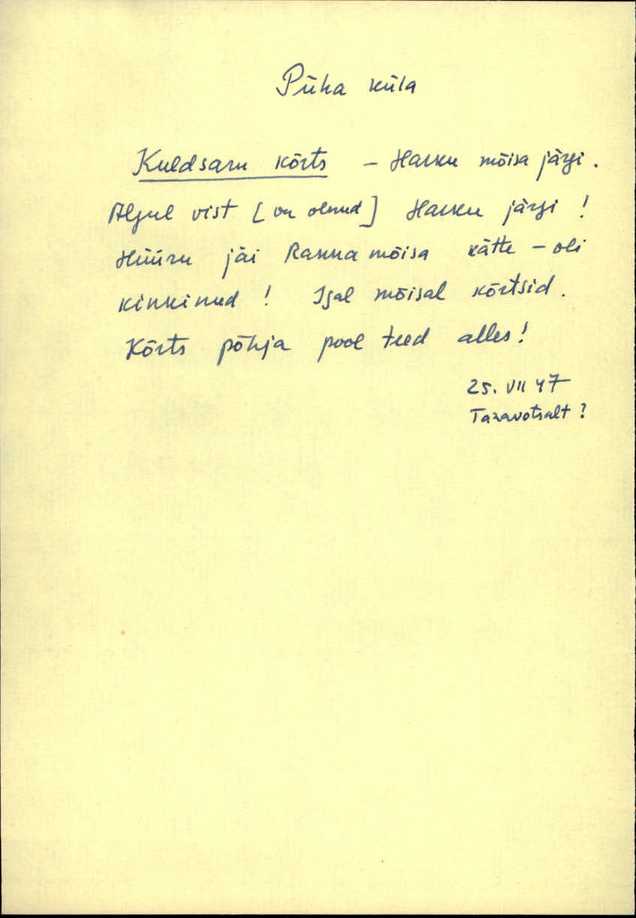 Püha küla
Kuldsaru kõrts – Harku mõisa järgi.
Algul vist [on olnud] Harku järgi!
Hüüru jäi Ranna mõisa kätte – oli
kinkinud! Igal mõisal kõrtsid.
Kõrts põhja pool teed alles!
25. VII 47
Taravotsalt?